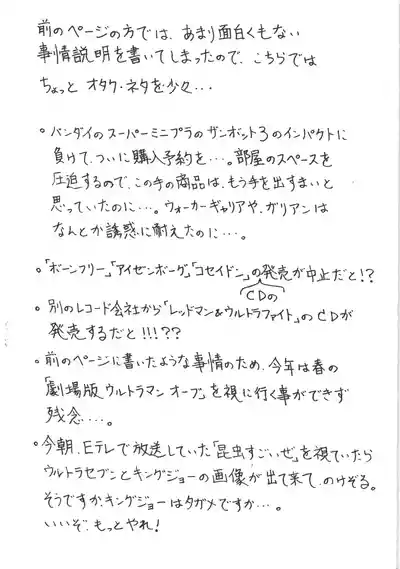 前のページの方では、あまり面白くもない
事情説明を書いてしまったので、こちらでは
ちょっと オタク・ネタを少々…
。バンダイのスーパーミニプラのザンボット3のインパクトに
負けて、ついに購入予約を…。部屋のスペースを
圧迫するので、この手の商品は、もう手を出すまいと
思っていたのに…。ウォーカーギャリアや、ガリアンは
なんとか誘惑に耐えたのに…。
。「ボーンフリー」「アイゼンボーグ」「コセイドン」の発売が中止だと!?
CDの
。別のレコード会社から「レッドマン&ウルトラファイト」のCDが
発売するだと!!!??
。前のページに書いたような事情のため、今年は春の
「劇場版 ウルトラマン オーブ」を視に行く事ができず
残念….。
。今朝、Eテレで放送していた「昆虫すごいぜ」を視ていたら
ウルトラセブンとキングジョーの画像が出て来て、のけぞる。
そうですか、キングジョーはタガメですか…。
いいぞ、もっとやれ!